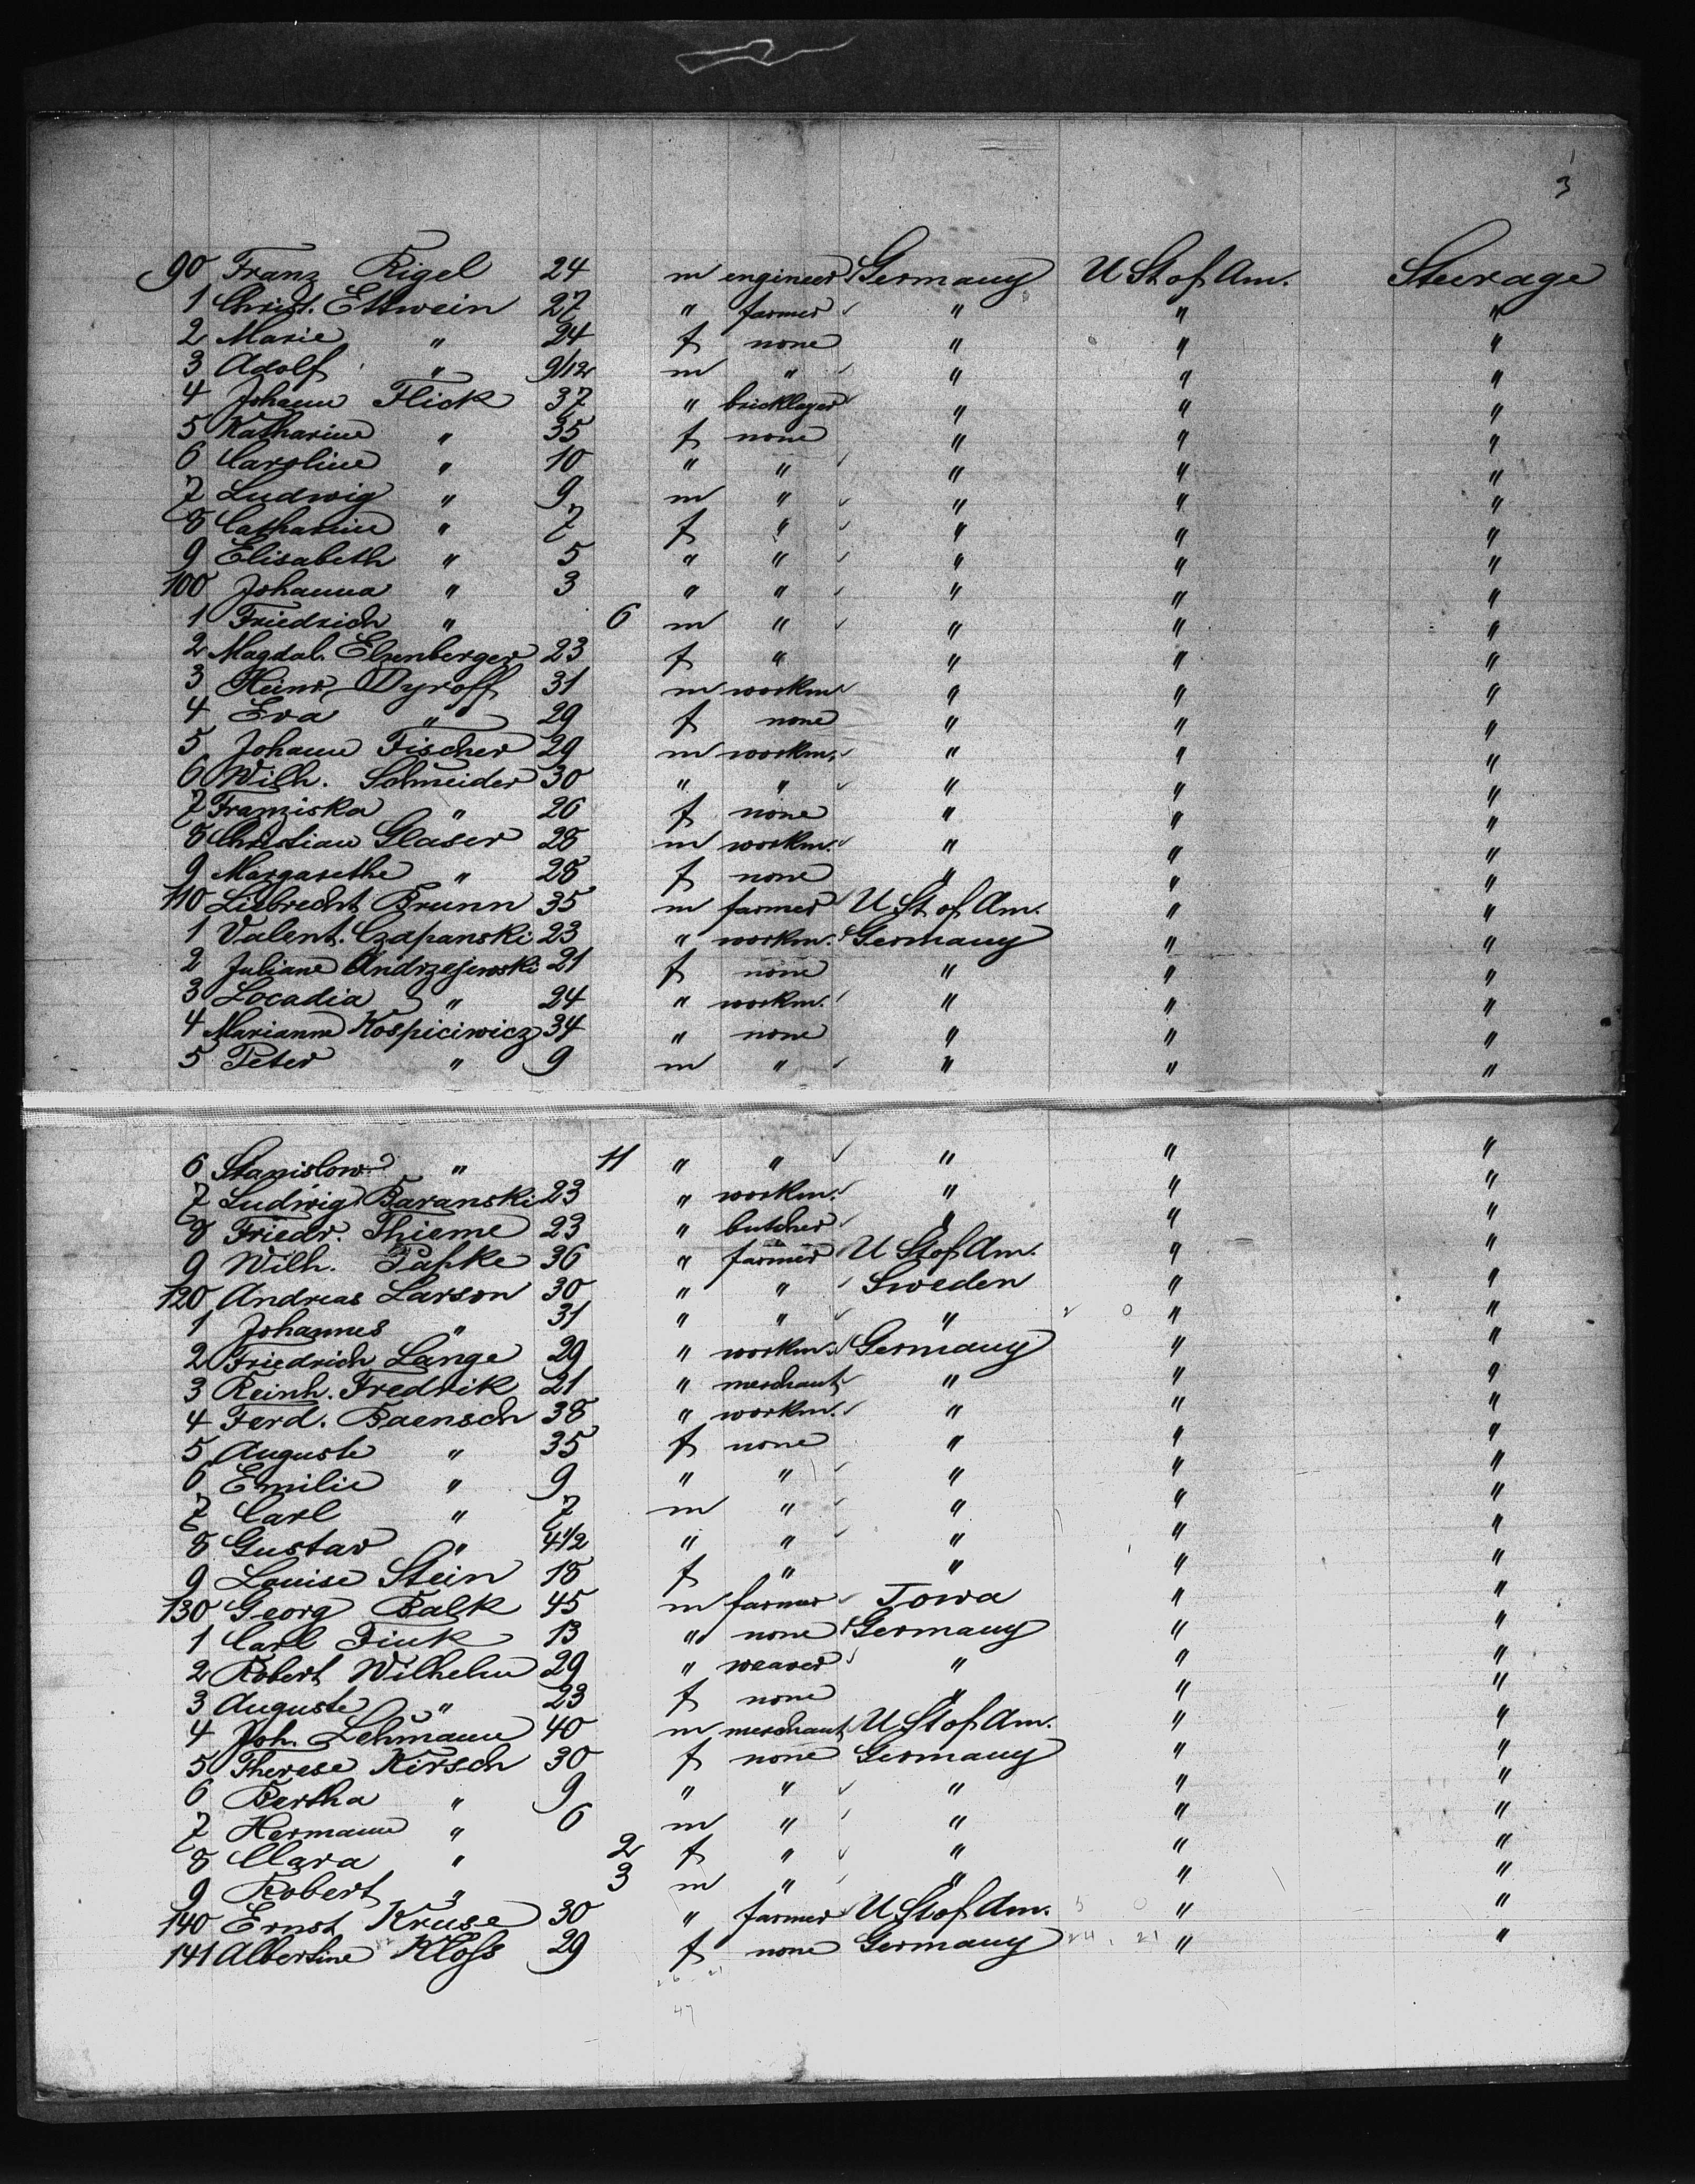 3
90 Franz Rigel 24 m engineer Germany U St of Am. Steerage
1 Christ. Ettwein 27 " farmer " " "
2 Marie " 24 f none " " "
3 Adolf " 9/12 m " " " "
4 Johann Flick 37 " bricklayer " " "
5 Katharine " 35 f none " " "
6 Caroline " 10 " " " " "
7 Ludwig " 9 m " " " "
8 Catharine " 7 f " " " "
9 Elisabeth " 5 " " " " "
100 Johanna " 3 " " " " "
1 Friedrich " 6 m " " " "
2 Magdal. Elzenberger 23 f " " " "
3 Heinr. Dyroff 31 m workm " " "
4 Eva " 29 f none " " "
5 Johann Fischer 29 m workm. " " "
6 Wilh. Schneider 30 " " " " "
7 Franziska " 26 f none " " "
8 Christian Glaser 28 m workm. " " "
9 Margarethe " 28 f none " " "
110 Liebrecht Brunn 35 m farmer U St of Am. " "
1 Valent. Czapanski 23 " workm. Germany " "
2 Juliane Andrzejewski 21 f none " " "
3 Locadia " 24 " workm. " " "
4 Marianne Kospiciwicz 34 " none " " "
5 Peter " 9 m " " " "
6 Stanislow " 11 " " " " "
7 Ludwig Baranski 23 " workm. " " "
8 Friedr. Thieme 23 " butcher " " "
9 Wilh. Papke 36 " farmer U St of Am. " "
120 Andreas Larson 30 " " Sweden " "
1 Johannes " 31 " " " " "
2 Friedrich Lange 29 " workm. Germany " "
3 Reinh. Fredrik 21 " merchant " " "
4 Ferd. Baensch 38 " workm. " " "
5 Auguste " 35 f none " " "
6 Emilie " 9 " " " " "
7 Carl " 7 m " " " "
8 Gustav " 4 1/2 " " " " "
9 Louise Stein 18 f " " " "
130 Georg Balk 45 m farmer Iowa " "
1 Carl Fink 13 " none Germany " "
2 Robert Wilhelm 29 " weaver " " "
3 Auguste " 23 f none " " "
4 Joh. Lehmann 40 m merchant U St of Am. " "
5 Therese Kirsch 30 f none Germany " "
6 Bertha " 9 " " " " "
7 Hermann " 6 m " " " "
8 Clara " 2 f " " " "
9 Robert " 3 m " " " "
140 Ernst Kruse 30 " farmer U St of Am. " "
141 Albertine Kloſs 29 f none Germany " "
47